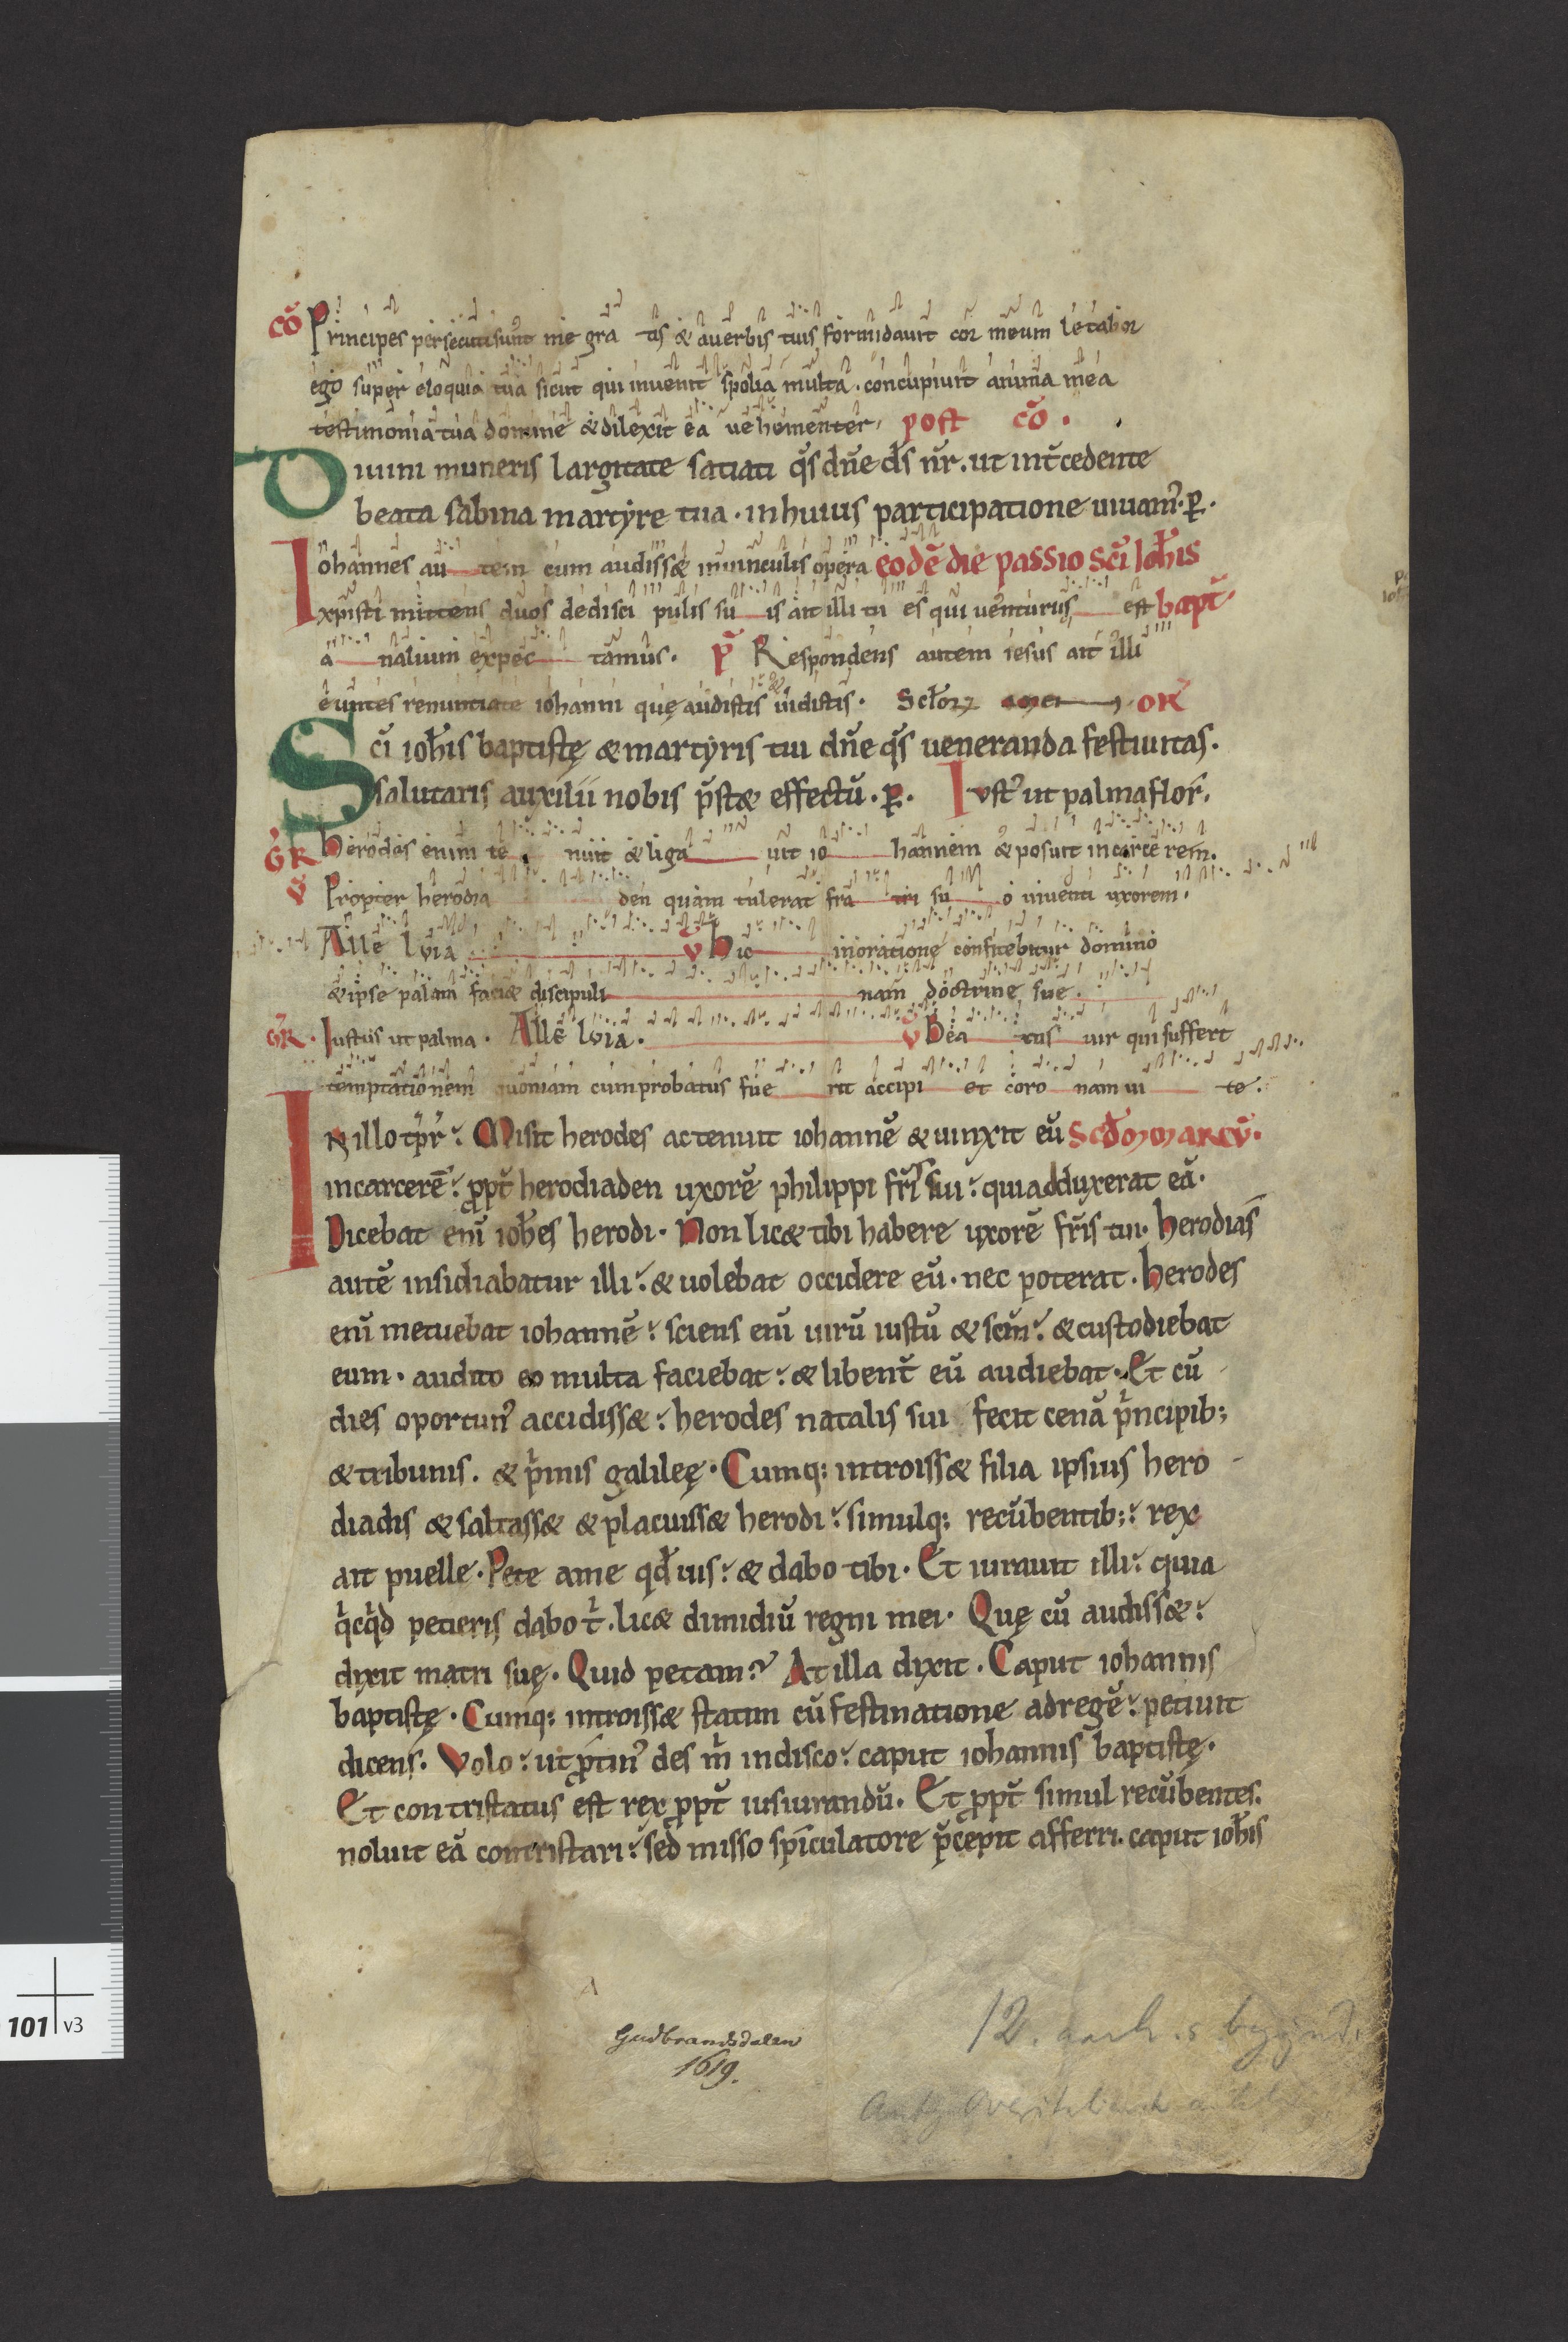 cō Principes persecuti sunt me gra tis & auerbis tuis formidauit cor meum letabor
ego super eloquia tua sicut qui inuenit spolia multa. concupiuit anima mea
testimonia tua domine & dilexit ea uehementer, post cō.
Diuini muneris largitate satiati q̄s dn̄e ds̄ nr̄. ut int̄cedente
beata sabina martyre tua. inhuius participatione uiuam᷒. p̱.
Iohannes au tem cum audiss& inuinculis opera eodē die passio sc̄i Ioh̄is
xpisti mittens duos dedisci pulis su is ait illi tu es qui uenturus est bapt̄.
a nalium expec tamus. p̄ Respondens autem iesus ait illi
euntes renuntiate iohanni quę audistis & uidistis. Sclorꝝ amen. OR̄
Sc̄i ioh̄is baptistę & martyris tui dn̄e q̄s ueneranda festiuitas.
salutaris auxilii nobis p̄st& effectū. p̱. Iust᷒ ut palma flor̄.
GR Herodes enim te nuit & liga uit io hannem & posuit incarce rem.
V̄ Propter herodia den quam tulerat fra tri su o uiuenti uxorem.
Alle luia V̄ Hic inoratione confitebitur domino
& ipse palam faci& discipuli nam doctrine sue.
GR. Iustus ut palma. Alle luia. V̄ Bea tus uir qui suffert
temptationem quoniam cumprobatus fue rit accipi et coro nam ui te.
IN illo tp̄r̄. Misit herodes ac tenuit iohannē & uinxit eū Scd̄m marcū.
incarcerē. ꝓpt̄ herodiaden uxorē philippi fr̄is sui. quia dduxerat eā.
Dicebat enī ioh̄es herodi. Non lic& tibi habere uxorē fr̄is tui. Herodias
autē insidiabatur illi. & uolebat occidere eū. nec poterat. Herodes
enī metuebat iohannē. sciens enī uirū iustū & scm̄. & custodiebat
eum. audito eo multa faciebat. & libent̄ eū audiebat. Et cū
dies oportun᷒ accidiss&. herodes natalis sui fecit cenā pⁱncipib;
& tribunis. & pⁱmis galileę. Cumq; introiss& filia ipsius hero-
diadis & saltass& & placuiss& herodi. simulq; recūbentib;. rex
ait puelle. Pete ame qd̄ uis. & dabo tibi. Et iurauit illi. quia
qⁱcqⁱd petieris dabo tⁱ. lic& dimidiū regni mei. Quę cū audiss&.
dixit matri suę. Quid petam? At illa dixit. Caput iohannis
baptistę. Cumq; introiss& statim cū festinatione adregē. petiuit
dicens. Volo. ut ꝓtin᷒ des mⁱ indisco. caput iohannis baptistę.
Et contristatus est rex ꝓpt̄ iusiurandū. Et ꝓpt̄ simul recūbentes.
noluit eā contristari. sed misso spiculatore p̄cepit afferri. caput ioh̄is
Gudbrandsdalen
1619.
12. aarh.s begynd.
101 v3